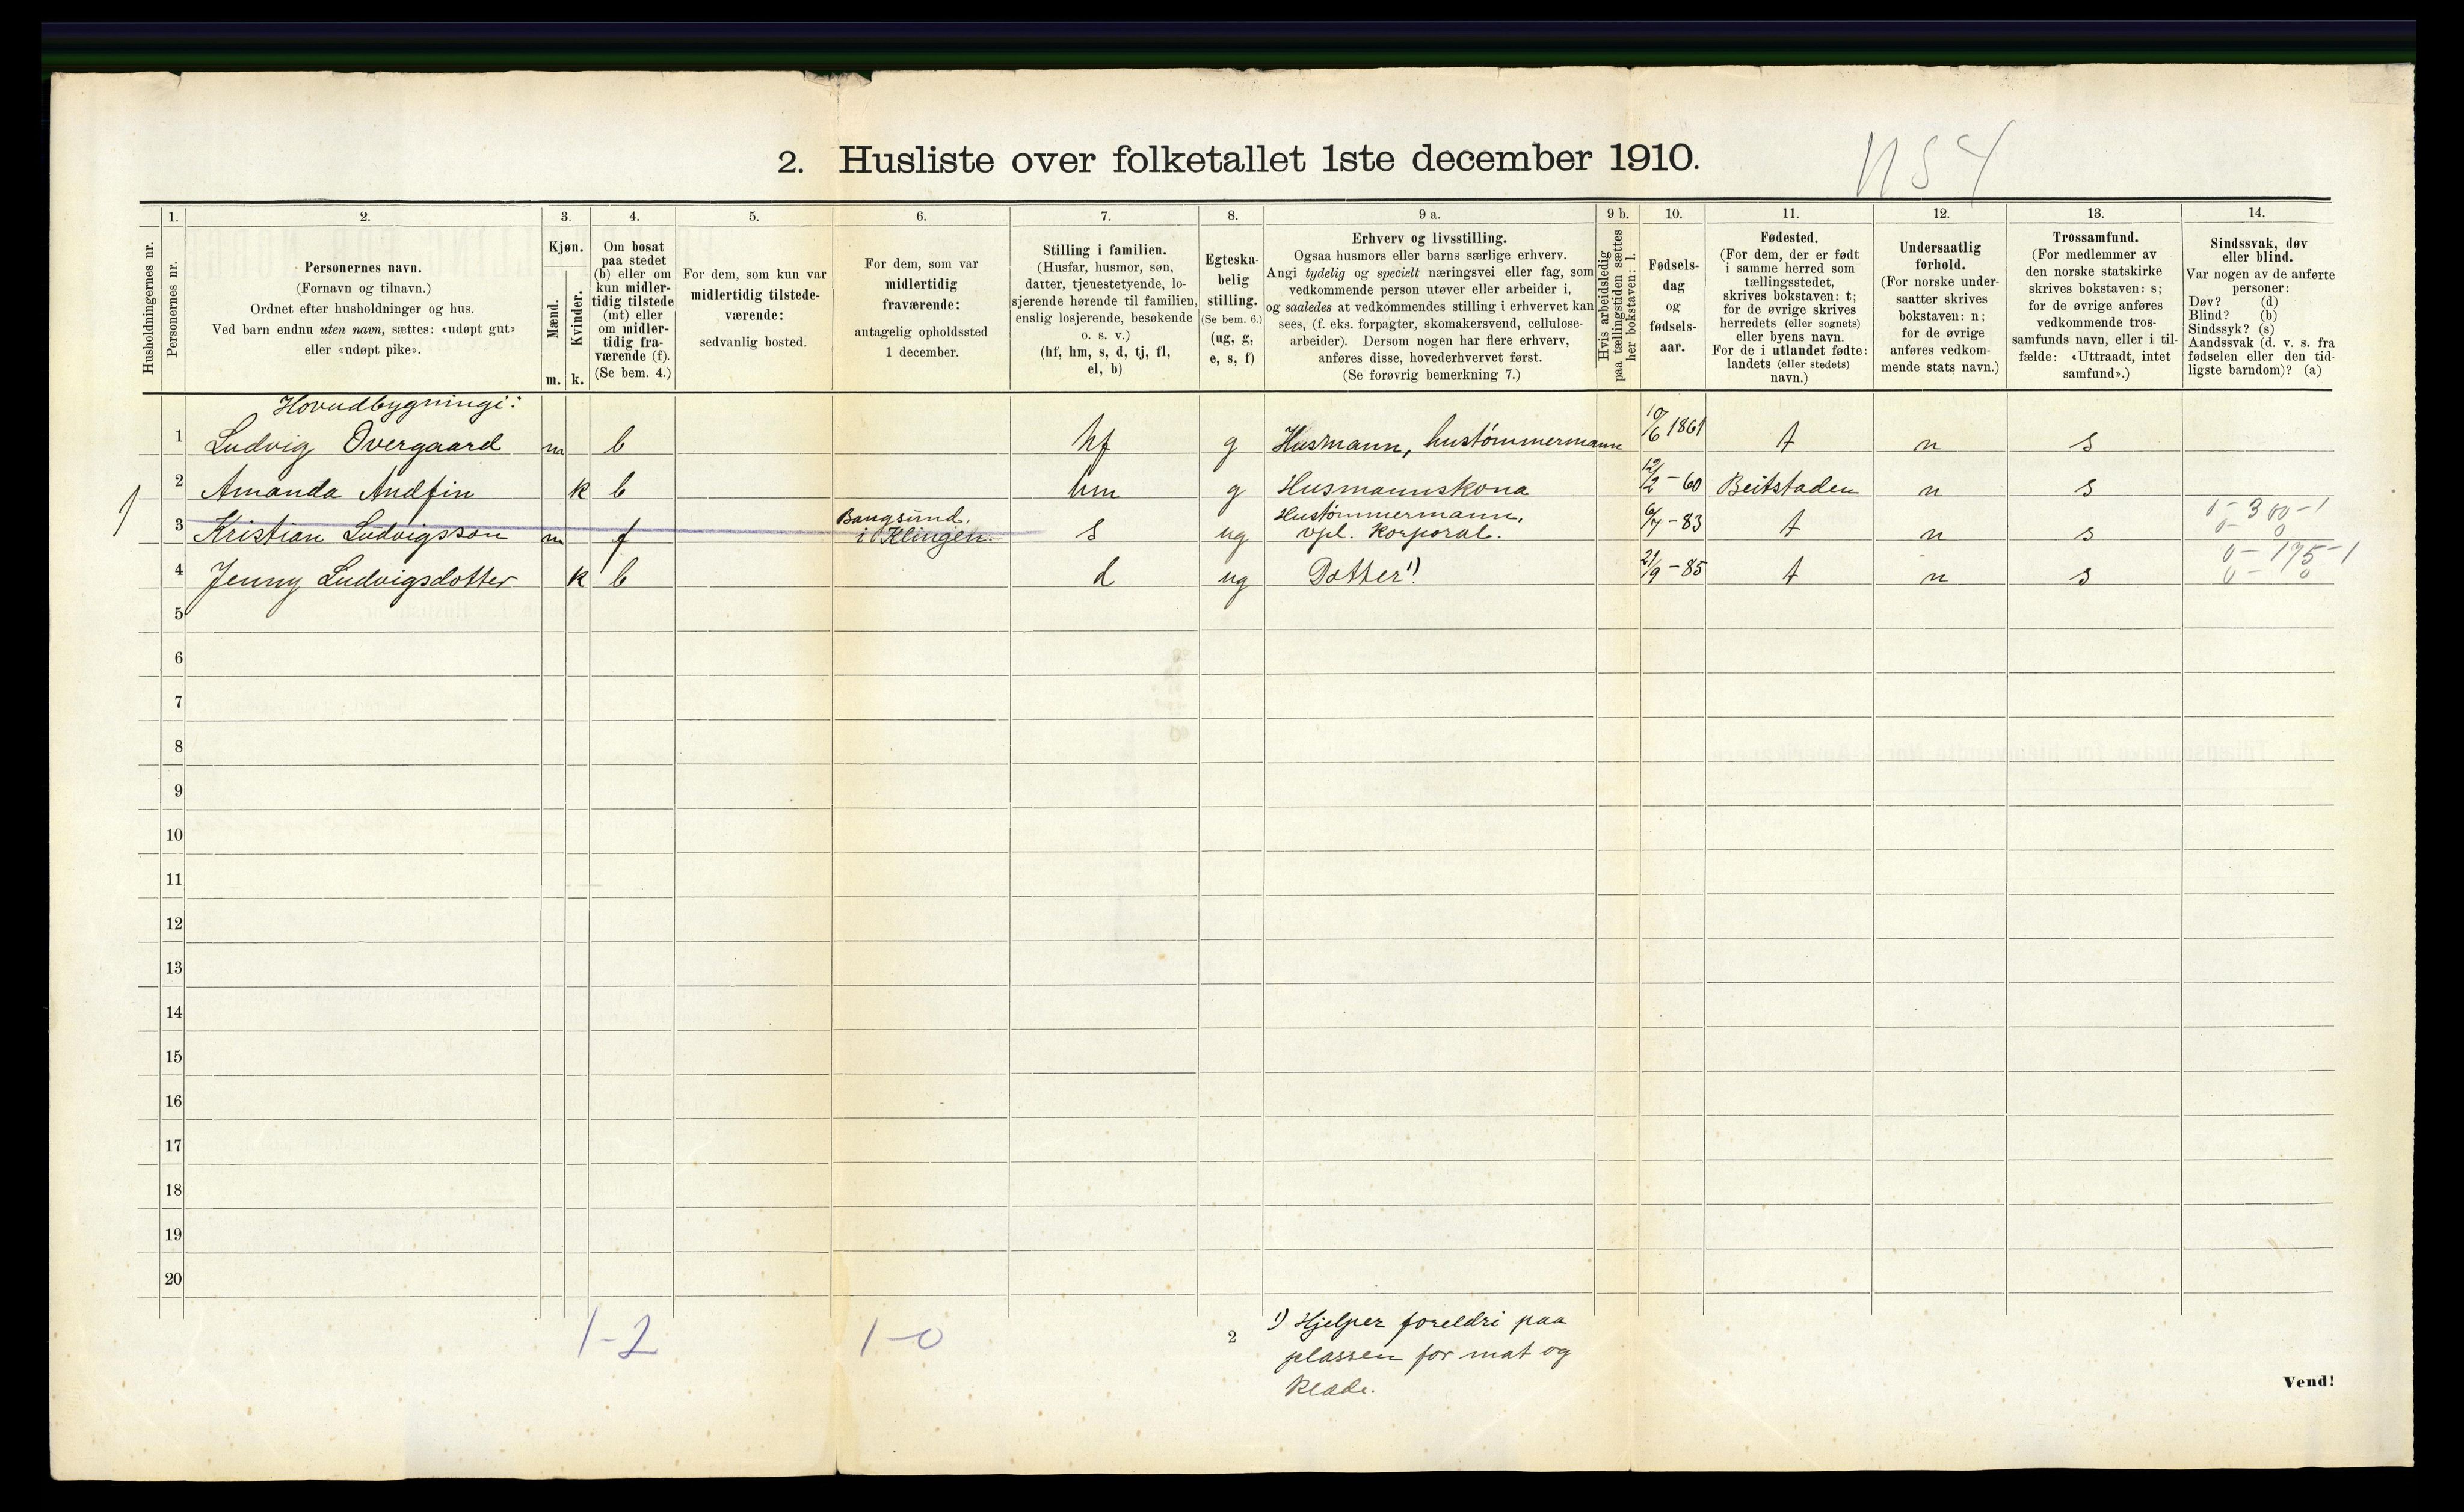 2. Husliste over folketallet 1ste december 1910.
1. 2. 3. 4. 5. 6. 7. 8. 9 a. 9 b. 10. 11. 12. 13. 14.
Husholdningernes nr.
Personernes nr.
Personernes navn.
(Fornavn og tilnavn.)
Ordnet efter husholdninger og hus.
Ved barn endnu uten navn, sættes: «udøpt gut»
eller «udøpt pike».
Kjøn.
Mænd.
Kvinder.
m. k.
Om bosat
paa stedet
(b) eller om
kun midler-
tidig tilstede
(mt) eller
om midler-
tidig fra-
værende (f).
(Se bem. 4.)
For dem, som kun var
midlertidig tilstede-
værende:
sedvanlig bosted.
For dem, som var
midlertidig
fraværende:
antagelig opholdssted
1 december.
Stilling i familien.
(Husfar, husmor, søn,
datter, tjenestetyende, lo-
sjerende hørende til familien,
enslig losjerende, besøkende
o. s. v.)
(hf, hm, s, d, tj, fl,
el, b)
Egteska-
belig
stilling.
(Se bem. 6.)
(ug, g,
e, s, f)
Erhverv og livsstilling.
Ogsaa husmors eller barns særlige erhverv.
Angi tydelig og specielt næringsvei eller fag, som
vedkommende person utøver eller arbeider i,
og saaledes at vedkommendes stilling i erhvervet kan
sees, (f. eks. forpagter, skomakersvend, cellulose-
arbeider). Dersom nogen har flere erhverv,
anføres disse, hovederhvervet først.
(Se forøvrig bemerkning 7.)
Hvis arbeidsledig
paa tællingstiden sættes
her bokstaven: l.
Fødsels-
dag
og
fødsels-
aar.
Fødested.
(For dem, der er født
i samme herred som
tællingsstedet,
skrives bokstaven: t;
for de øvrige skrives
herredets (eller sognets)
eller byens navn.
For de i utlandet fødte:
landets (eller stedets)
navn.)
Undersaatlig
forhold.
(For norske under-
saatter skrives
bokstaven: n;
for de øvrige
anføres vedkom-
mende stats navn.)
Trossamfund.
(For medlemmer av
den norske statskirke
skrives bokstaven: s;
for de øvrige anføres
vedkommende tros-
samfunds navn, eller i til-
fælde: «Uttraadt, intet
samfund».)
Sindssvak, døv
eller blind.
Var nogen av de anførte
personer:
Døv? (d)
Blind? (b)
Sindssyk? (s)
Aandssvak (d. v. s. fra
fødselen eller den tid-
ligste barndom)? (a)
Hovudbygningi:
1 Ludvig Overgaard m b hf g Husmann, hustømmermann 10/6 1861 t n s
2 Amanda Andfin k b hm g Husmannskona 12/2 - 60 Beitstaden n s
1
Bangsund, Hustømmermann, 0-300-1
3 Kristian Ludvigsson m f i Klingen. s ug vpl. korporal. 6/7 - 83 t n s 0- 0
0-175-1
4 Jenny Ludvigsdotter k b d ug Dotter¹) 21/9 - 85 t n s 0- 0
5
6
7
8
9
10
11
12
13
14
15
16
17
18
19
20
1-2 1-0 2
¹) Hjelper foreldri paa
plassen for mat og
klæde.
Vend!